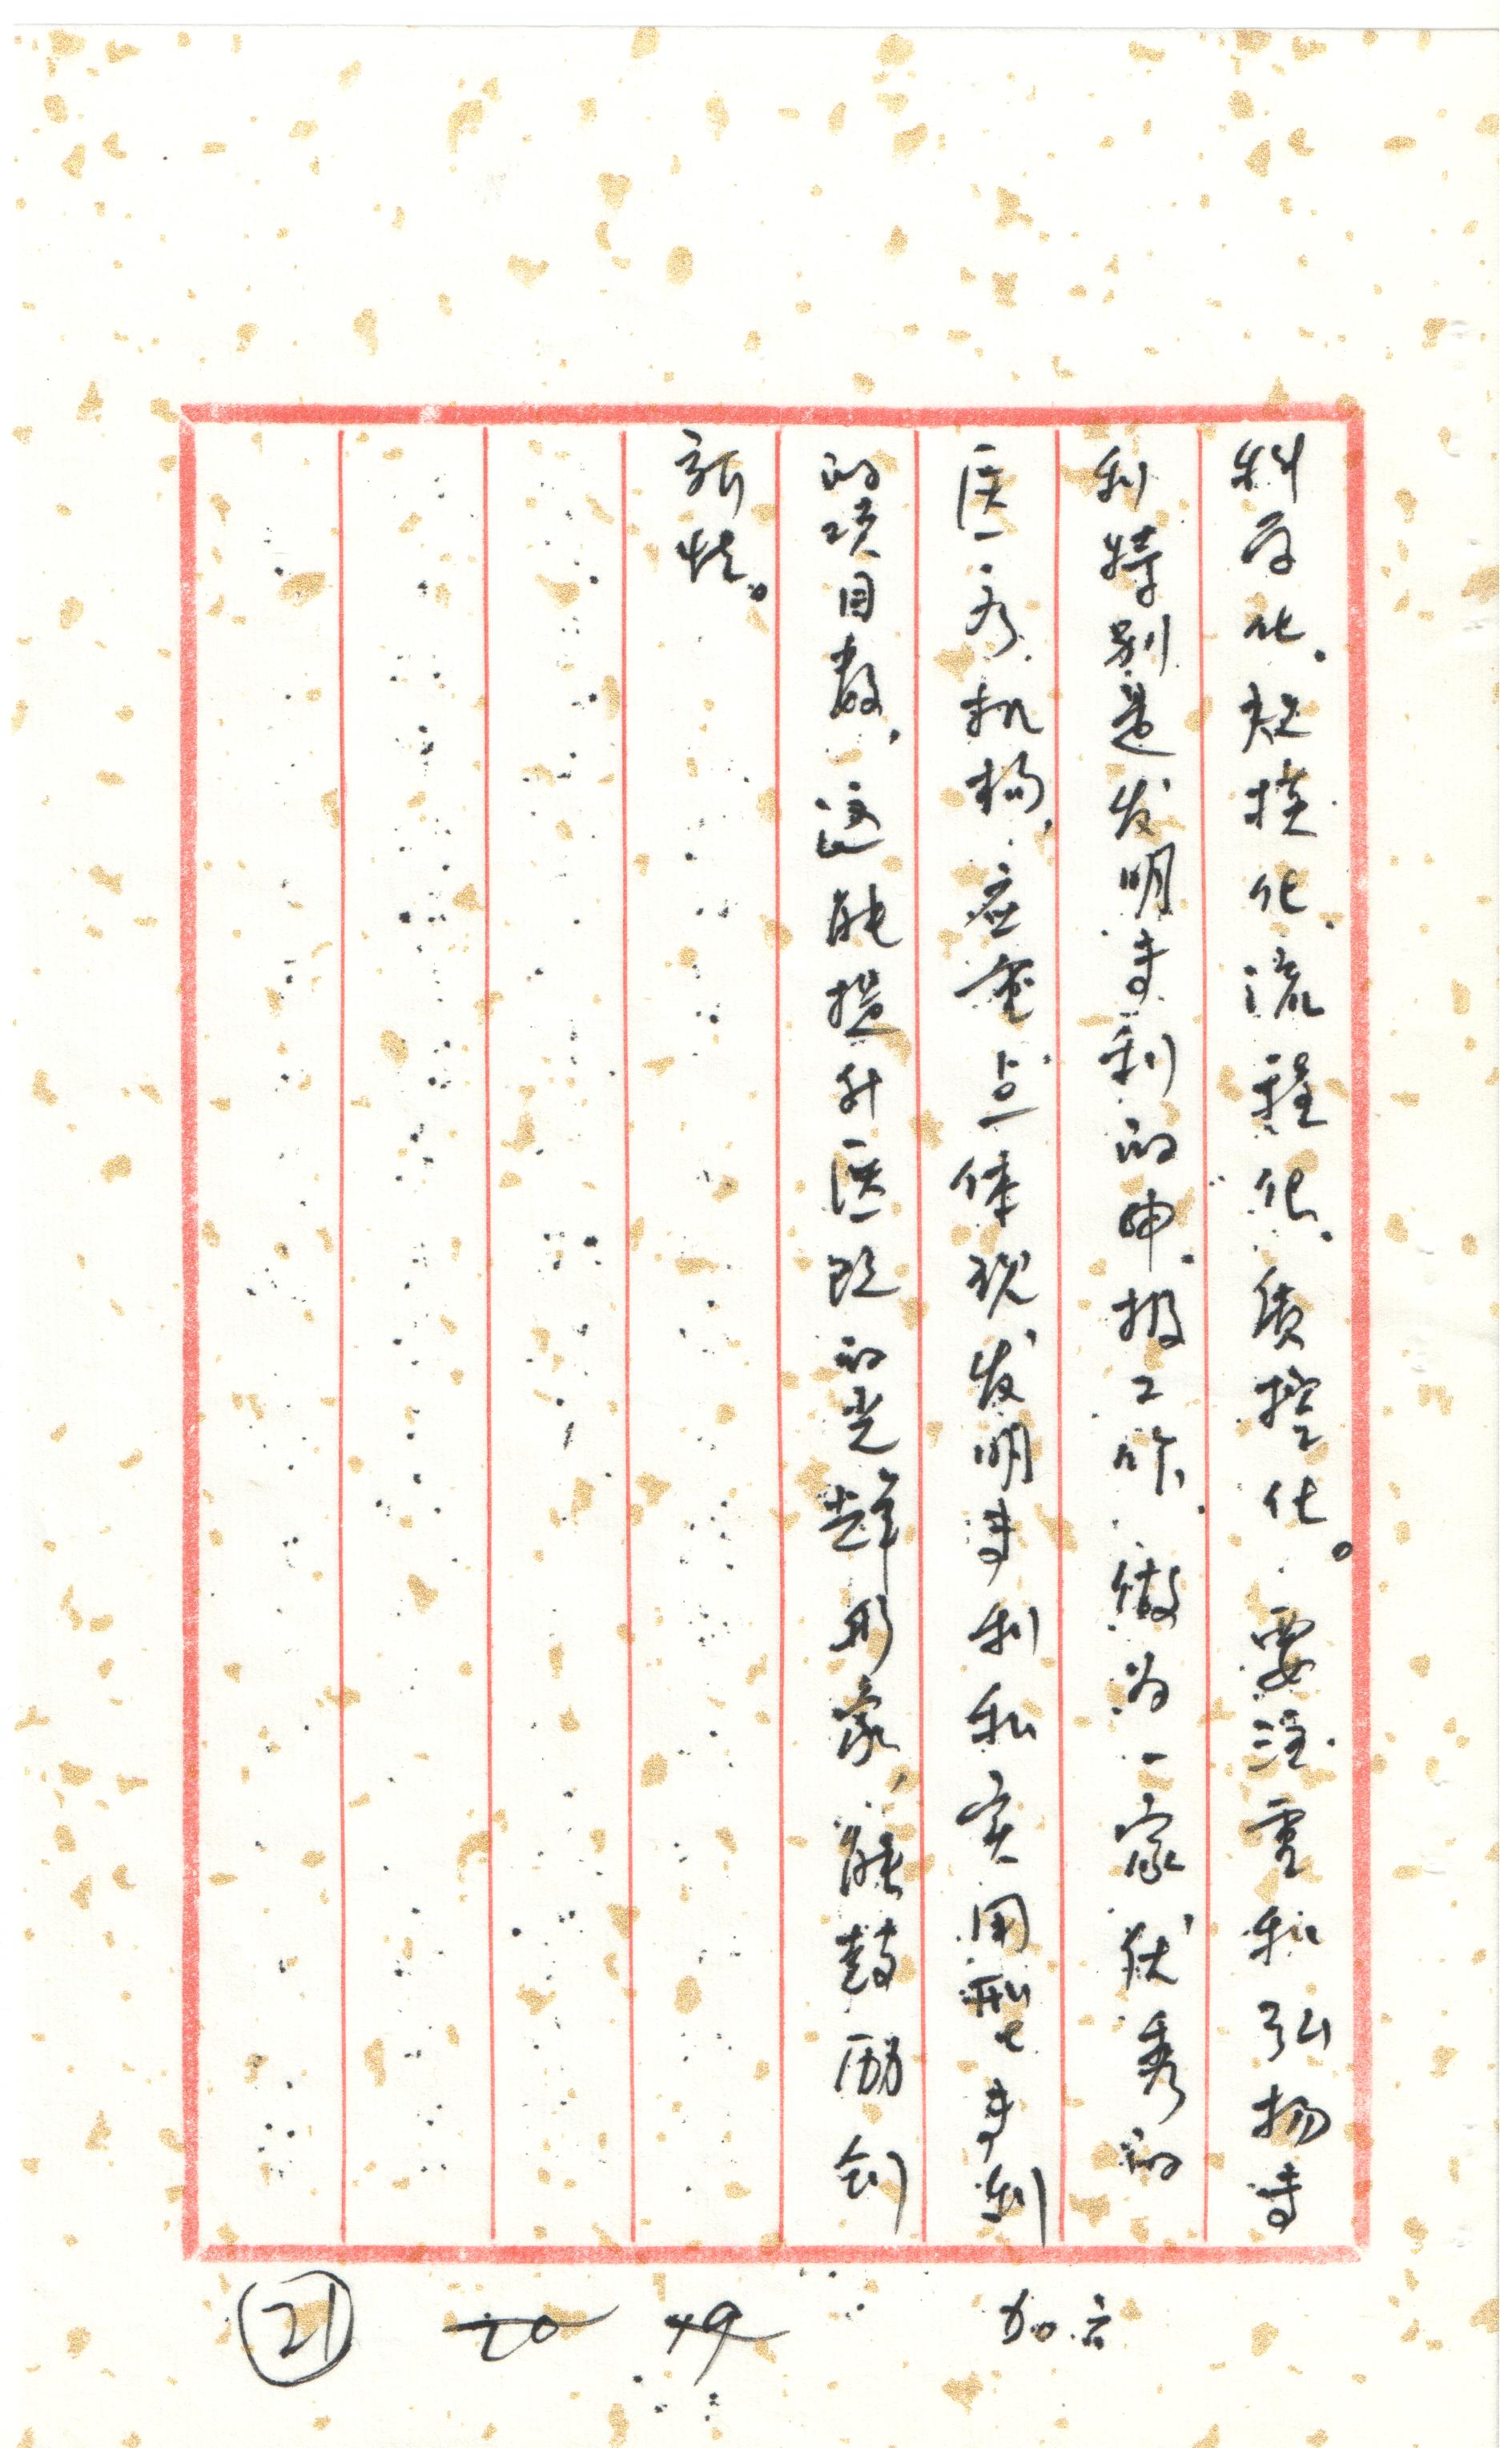 科定化、规模化、流程化、质控化。要注重和弘扬专
利特别是发明专利的申报工作，做为一家优秀的
医疗机构，应重点体现发明专利和实用型专利
的项目数，这能提升医院的光辉形象，能鼓励创
新性。
加六
19
20
21